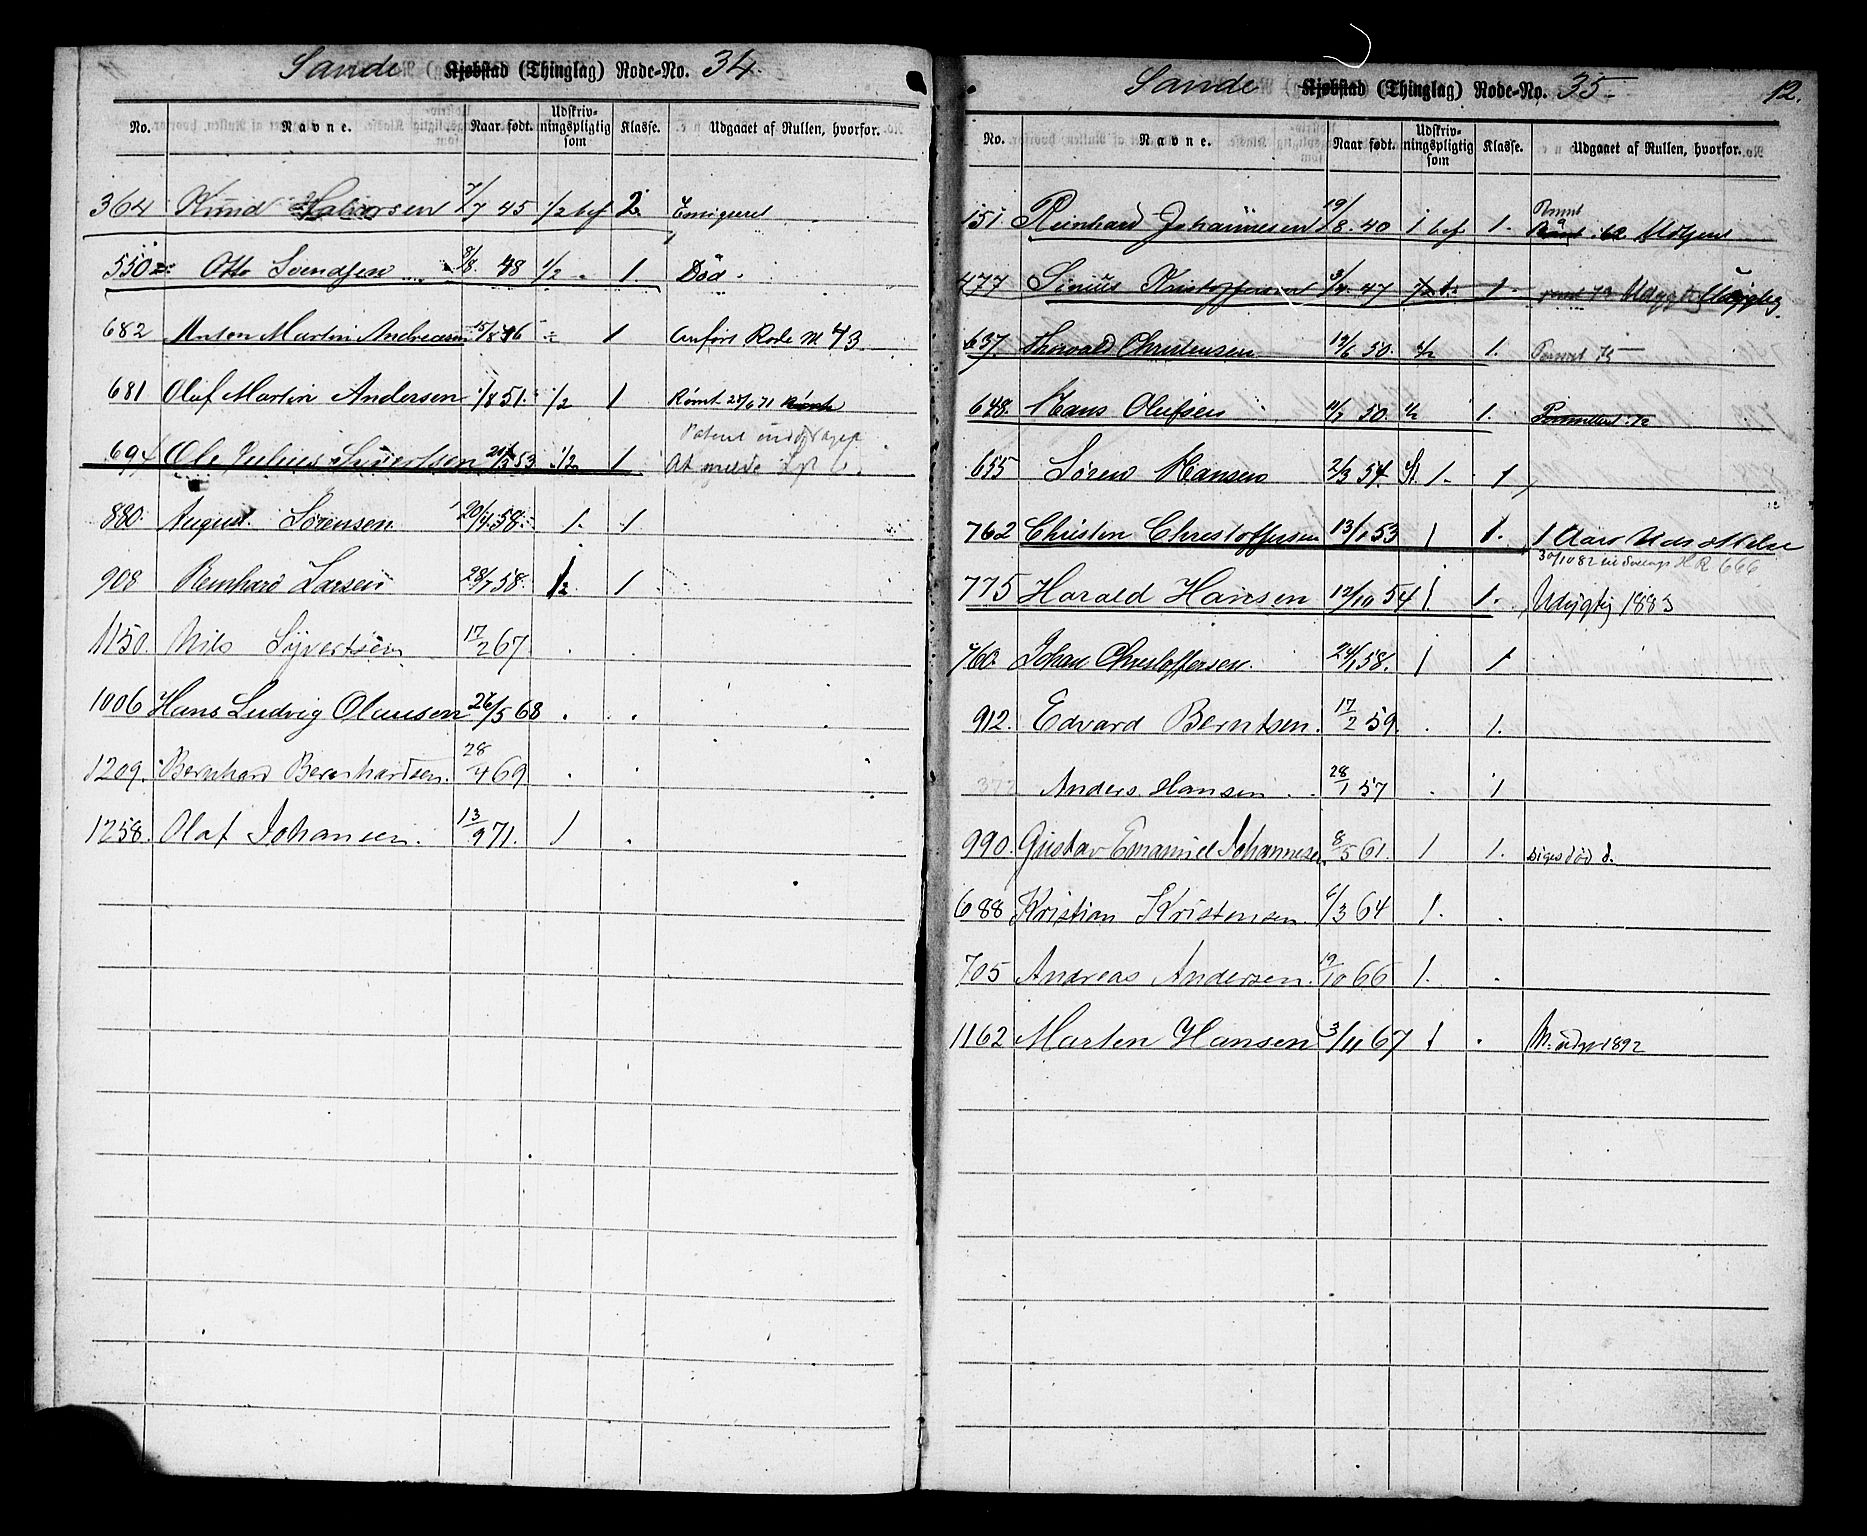 Sande Kjøbstad (Thinglag) Rode-No. 34.
No. Navne. Naar født. Udskriv-ningspligtig som Klasse. Udgaaet af Rullen, hvorfor.
364 Knud Halvorsen 7/7 45 1/2 bef 2. Emigreret
550 Otto Svendsen 3/8 48 1/2 1. Død.
682 Anton Martin Andreasen 15/8 46 1 Anført Rode No 43
681 Olaf Martin Andersen 1/8 51. 1/2 1 Rømt 28/6 71
Patent
694 Ole Julius Syvertsen 53 1/2 1. At melde
880. August Sørensen 20/4 58. 1. 1
908 Bernhard Larsen 28/7 58. 1/2 1
1150. Nils Syvertsen 17/2 67.
1006 Hans Ludvig Olausen 26/5 68
1209. Bernhard Bernhardsen. 28/4 69
1258. Olaf Johansen. 13/9 71. 1
Sande Kjøbstad (Thinglag) Rode-No. 35. 12.
No. Navne. Naar født. Udskriv-ningspligtig som Klasse. Udgaaet af Rullen, hvorfor.
Rømt
151. Reinhard Johannesen 19/8. 40 1 bef 1.
477 Sinius Kristoffersen 3/4. 47 1/2 1.
637. Thorvald Christensen 13/6 50. 1/2 1.
648. Hans Olufsen 11/7 50. 1/2 1.
655 Søren Hansen 2/3 54. 1. 1
762 Christen Christoffersen 13/1 53 1 1. 1 Aars Uds
30/10 82 HR 666
775 Harald Hansen 12/10 54 1. 1. Udygtig 1883
760. Johan Christoffersen. 24/1 58. 1 1
912. Edvard Berntsen. 17/2 59. 1.
372 Anders Hansen. 28/1 57 1
990. Gustav Emanuel Johannesen. 8/5 61. 1 1. siges død
688 Kristian Kristensen 6/3 64 1.
705 Andreas Andersen. 19/10 66 1.
1162 Marten Hansen 3/11 67 1 1892